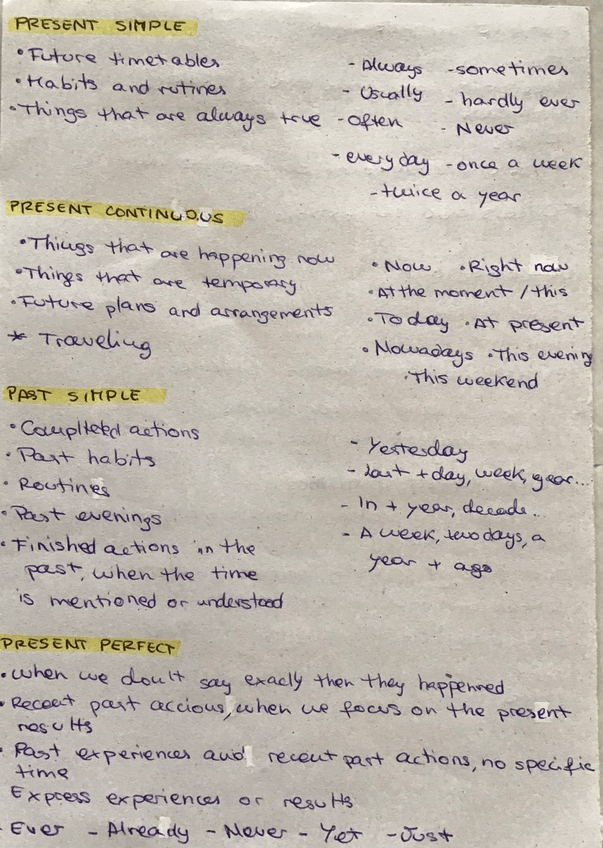 PRESENT SIMPLE
• Future timetables
• Habits and rutines
• Things that are always true
- Always - sometimes
- Usually - hardly ever
- Often - Never
- every day - once a week
- twice a year
PRESENT CONTINUOUS
• Things that are happening now
• Things that are temporary
• Future plans and arrangements
* Traveling
• Now • Right now
• At the moment / this
• Today • At present
• Nowadays • This evening
• This weekend
PAST SIMPLE
• Complteted actions
• Past habits
• Routines
• Past evenings
• Finished actions in the
past, when the time
is mentioned or understood
- Yesterday
- last + day, week, year...
- In + year, decade..
- A week, two days, a
year + ago
PRESENT PERFECT
• when we don't say exacly then they happenned
• Recent past accious, when we focus on the present
results
• Past experiences and recent past actions, no specific
time
Express experiences or results
Ever - Already - Never - Yet - Just